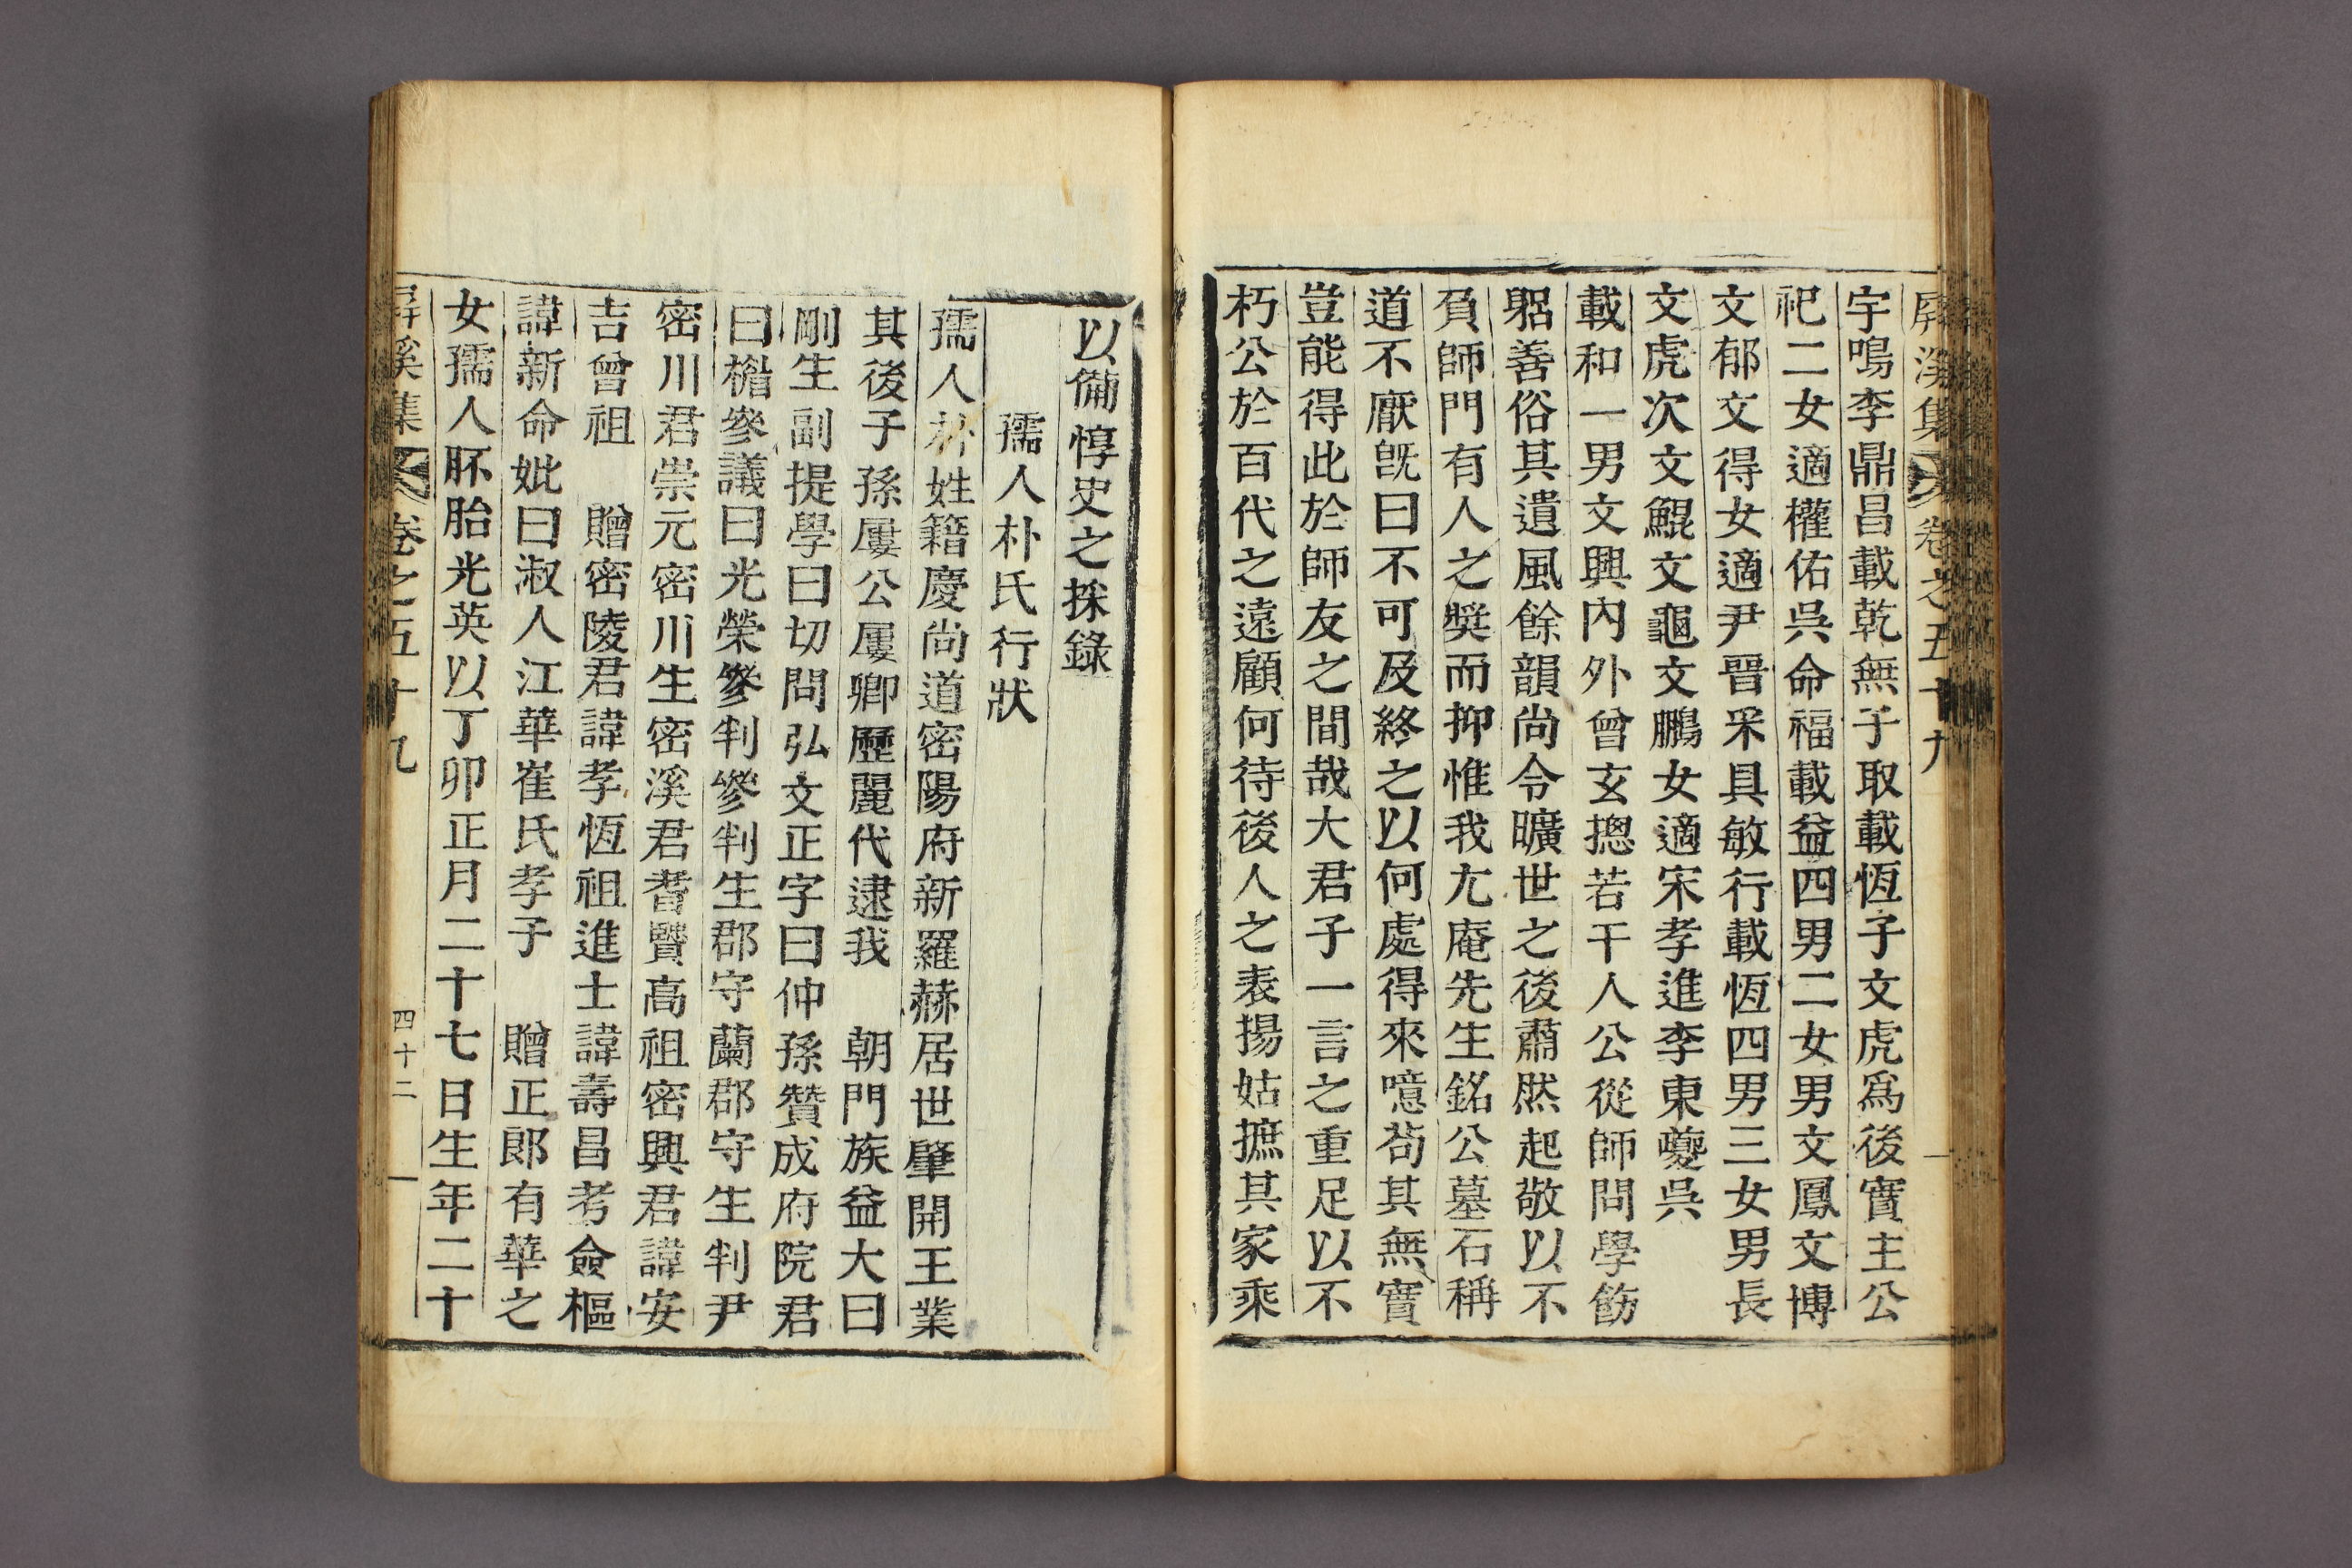 屛溪集 卷之五十九
宇鳴李鼎昌載乾無子取載恆子文虎爲後寶主公
祀二女適權佑吳命福載益四男二女男文鳳文博
文郁文得女適尹晋釆具敏行載恆四男三女男長
文虎次文鯤文龜文鵬女適宋孝進李東夔吳
載和一男文興內外曾玄摠若干人公從師問學飭
躬善俗其遺風餘韻尚令曠世之後肅然起敬以不
負師門有人之奬而抑惟我尤庵先生銘公墓石稱
道不厭旣曰不可及終之以何處得來噫苟其無實
豈能得此於師友之間哉大君子一言之重足以不
朽公於百代之遠顧何待後人之表揚姑摭其家乘
以備惇史之採錄
孺人朴氏行狀
孺人朴姓籍慶尚道密陽府新羅赫居世肇開王業
其後子孫屢公屢卿歷麗代逮我 朝門族益大曰
剛生副提學曰切問弘文正字曰仲孫贊成府院君
曰楷參議曰光榮參判參判生郡守蘭郡守生判尹
密川君崇元密川生密溪君耆賢高祖密興君諱安
吉曾祖 贈密陵君諱孝恆祖進士諱壽昌考僉樞
諱新命妣曰淑人江華崔氏孝子 贈正郎有華之
女孺人胚胎光英以丁卯正月二十七日生年二十
屛溪集 卷之五十九 四十二